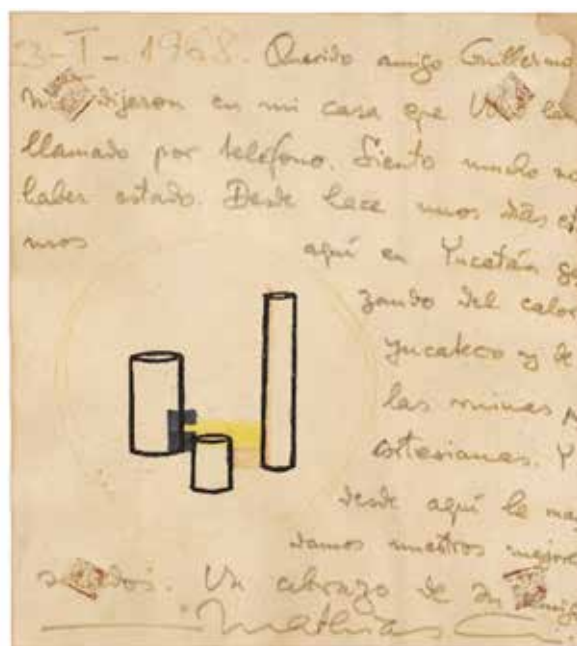 3-I-1968. Querido amigo Guillermo
me dijeron en mi casa que Ud. ha
llamado por teléfono. Siento mucho no
haber estado. Desde hace unos días es
mos
aquí en Yucatán go
zando del calor
yucateco y de
las ruinas p
cortesianas. Y
desde aquí le man
damos nuestros mejore
saludos. Un abrazo de su amig
Mathias